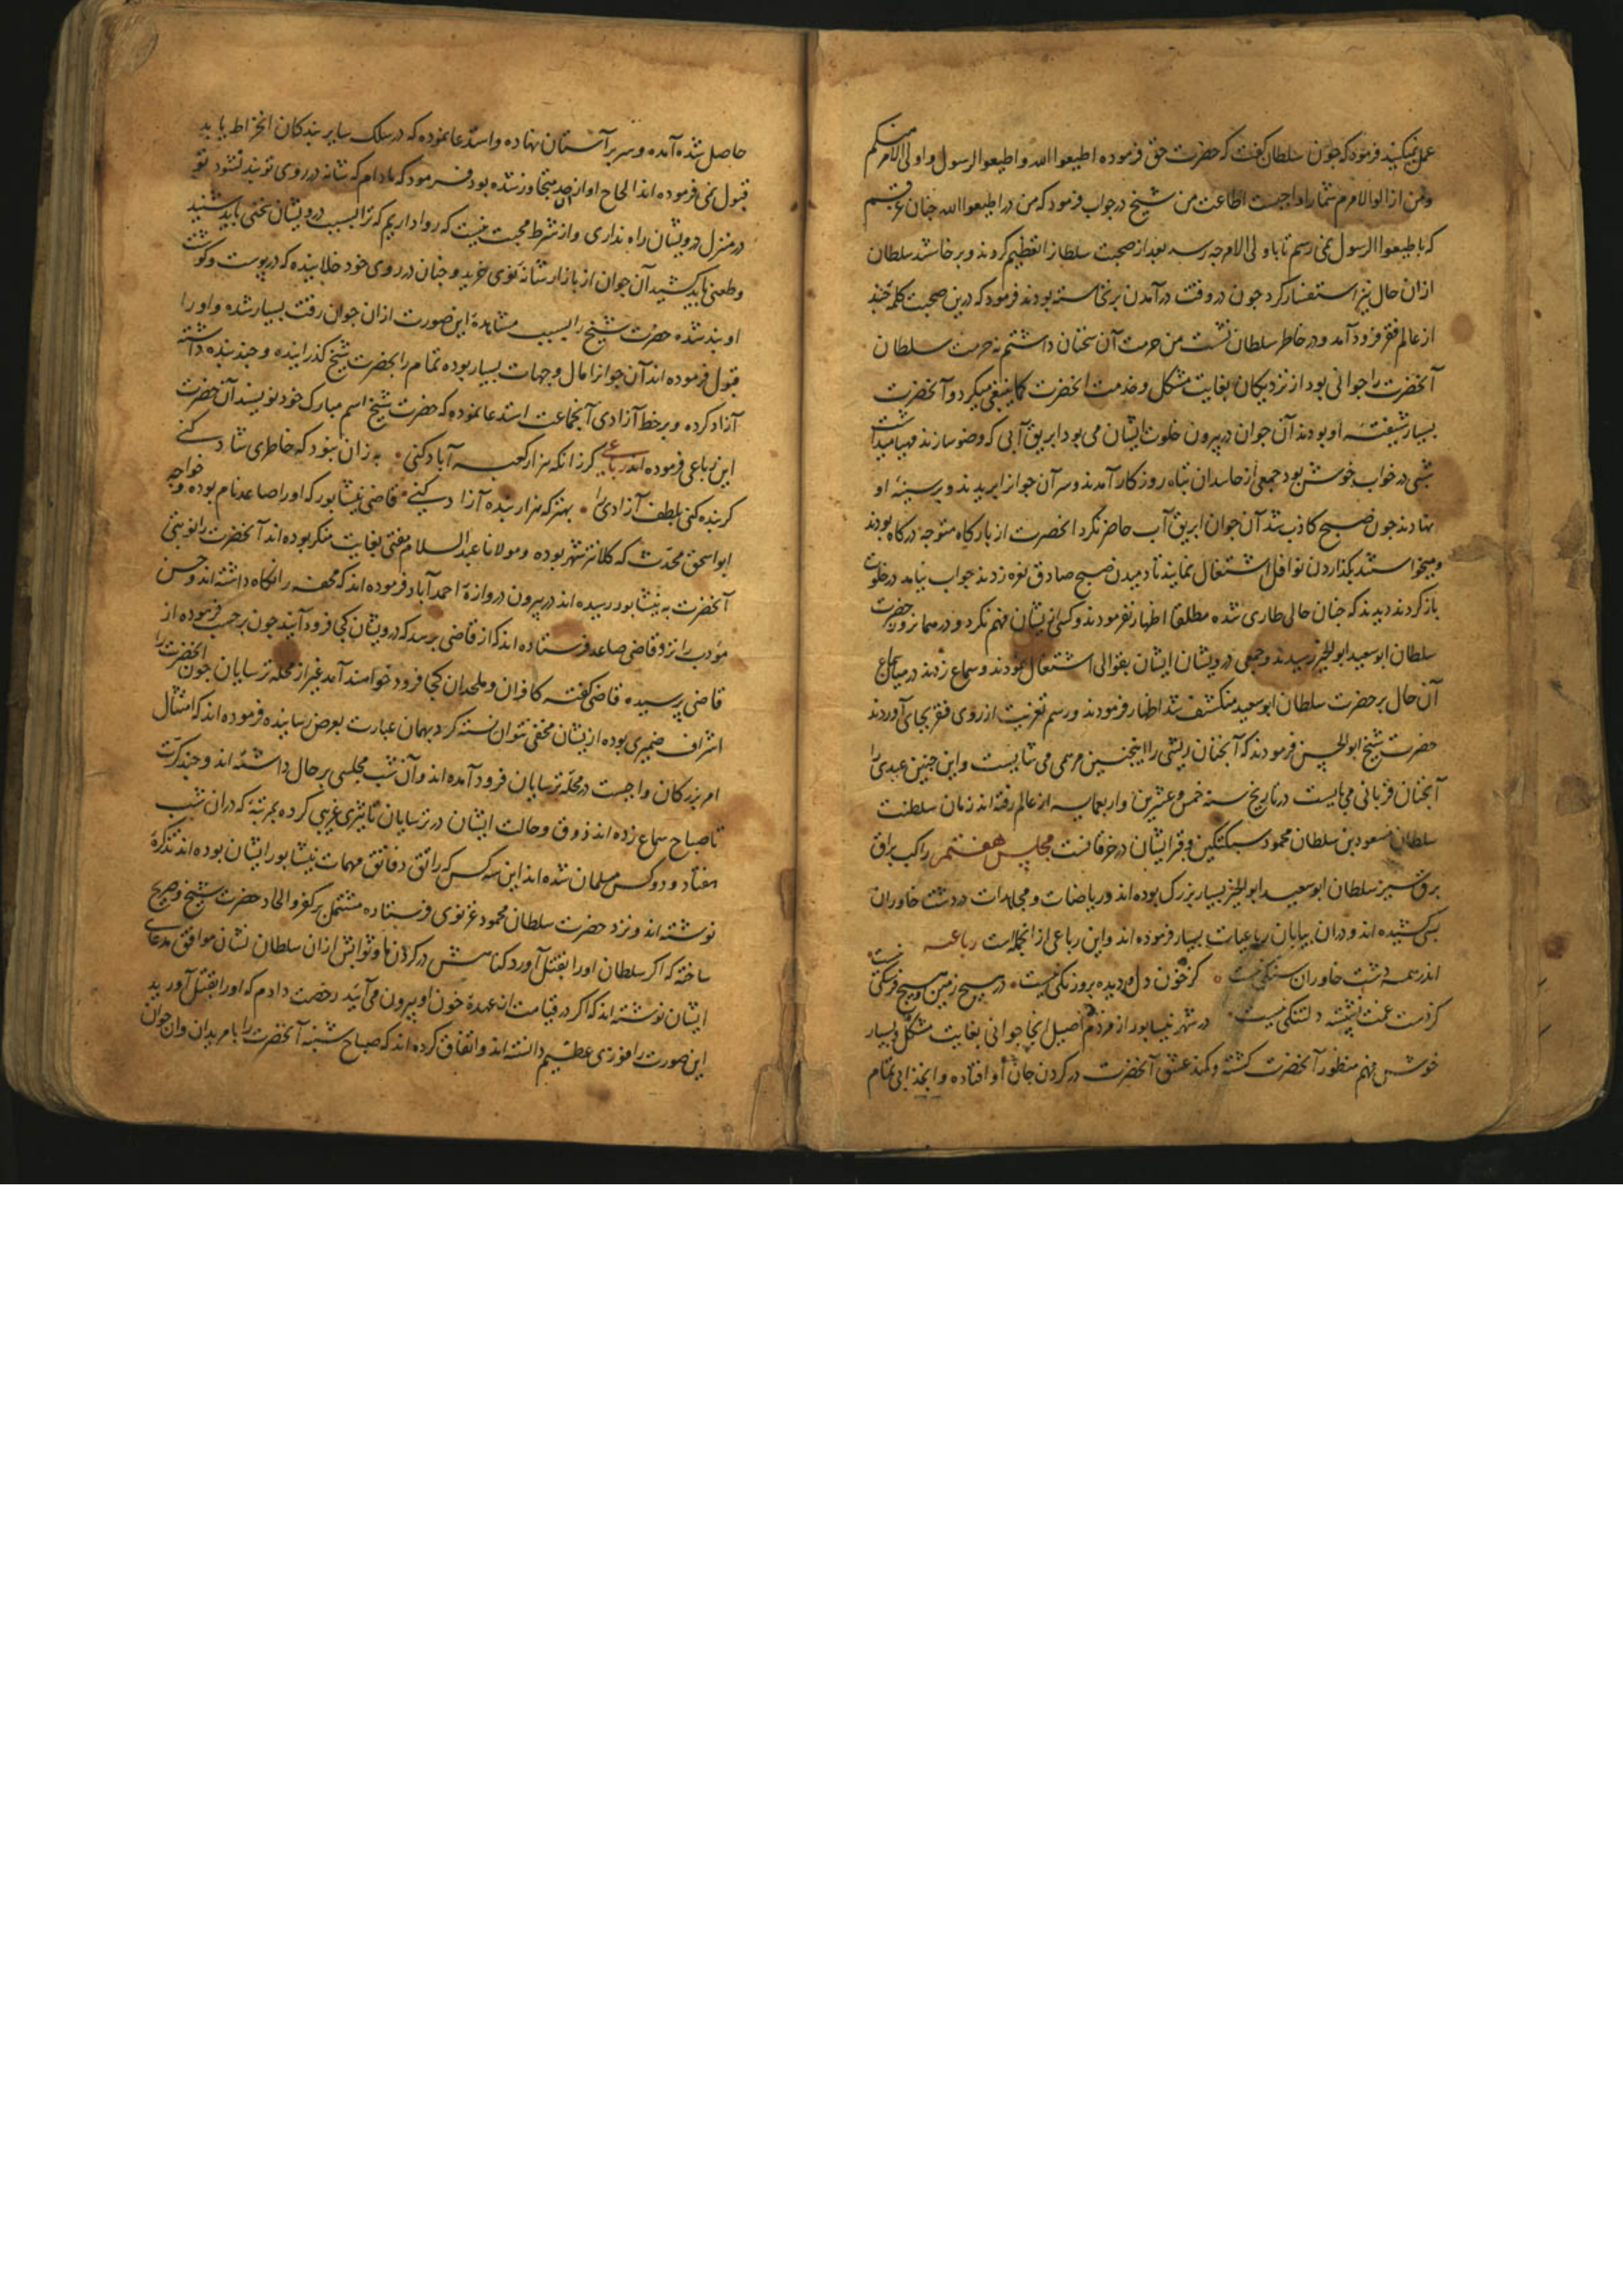 عمل نمیکنید فرمود که چون سلطان گفت که حضرت حق فرموده اطیعوا الله و اطیعوا الرسول و اولی الامر منکم
و من از اولوالامرم شما را واجبست اطاعت من شیخ در جواب فرمود که من در اطیعوا الله چنان غرقم
که باطیعوا الرسول نمی رسم تا باولی الامر چه رسد بعد از صحبت سلطانرا تعظیم کردند و برخاستند سلطان
ازان حال نیز استفسار کرد چون در وقت درآمدن برنخاسته بودند فرمود که درین صحبت کلمهٔ چند
از عالم فقر فرود آمد و در خاطر سلطان نشست من حرمت آن سخنان داشتم نه حرمت سلطان
آنحضرت را جوانی بود از نزدیکان بغایت مشکل و خدمت آنحضرت کما ینبغی میکرد و آنحضرت
بسیار شیفته او بودند آن جوان در بیرون خلوت ایشان می بود ابریق آبی که وضو سازند مهیا میداشت
شبی در خواب خوش بود جمعی از حاسدان تباه روزکار آمدند و سر آن جوانرا بریدند و بر سینهٔ او
نهادند چون صبح کاذب شد آن جوان ابریق آب حاضر نکرد آنحضرت از بارکاه متوجه درکاه بودند
و میخواستند بکذاردن نوافل اشتغال نمایند تا دمیدن صبح صادق نعره زدند جواب نیامد در خلوت
باز کردند دیدند که چنان حالی طاری شده مطلقا اظهار نفرمودند و کسی ازیشان فهم نکرد و در همانروز حضرت
سلطان ابوسعید ابوالخیر رسیدند و جمعی درویشان ایشان بقوالی اشتغال نمودند و سماع زدند در میان سماع
آن حال بر حضرت سلطان ابوسعید منکشف شد اظهار فرمودند و رسم تعزیت از روی فقر بجای آوردند
حضرت شیخ ابوالحسن فرمودند که آنچنان ریشی را اینچنین مرهمی می شایست و این چنین عیدی را
آنچنان قربانی می بایست در تاریخ سنه خمس و عشرین و اربعمایه از عالم رفته اند زمان سلطنت
سلطان مسعود بن سلطان محمود سبکتکین و قبر ایشان در خرقانست مجلس هفتم راکب براق
برق سیر سلطان ابوسعید ابوالخیر بسیار بزرک بوده اند و ریاضات و مجاهدات در دشت خاوران
بسی کشیده اند و دران بیابان رباعیات بسیار فرموده اند و این رباعی از انجمله است رباعیه
اندر همه دشت خاوران سنکی نیست کز خون دل و دیده برو رنکی نیست در هیچ زمین و هیچ فرسنکی نیست
کز دست غمت نشسته دلتنکی نیست در شهر نیشابور از مردم اصیل انجا جوانی بغایت مشکل و بسیار
خوش فهم منظور آنحضرت کشته و کمند عشق آنحضرت در کردن جان او افتاده و انجذابی تمام
حاصل شده آمده و سر بر آستان نهاده و استدعا نموده که در سلک سایر بندکان انخراط یابد
قبول نمی فرموده اند الحاح او از حد متجاوز شده بود فرمود که مادام که شانه در روی تو بند نشود تو
در منزل درویشان راه نداری و از شرط محبت نیست که روا داریم که ترا بسبب درویشان سخنی باید شنید
و طعنی باید کشید آن جوان از بازار شانهٔ نوی خرید و چنان در روی خود خلانیده که در پوست و کوشت
او بند شده حضرت شیخ را بسبب مشاهدهٔ این صورت ازان جوان رقت بسیار شده و او را
قبول فرموده اند آن جوانرا مال و جهات بسیار بوده تمام را بحضرت شیخ کذرانیده و چند بنده داشته
آزاد کرده و بر خط آزادی آنجماعت استدعا نموده که حضرت شیخ اسم مبارک خود نویسند آن حضرت
این رباعی فرموده اند رباعی کر زانکه هزار کعبه آباد کنی به زان نبود که خاطری شاد کنی
کر بنده کنی بلطف آزادی را بهتر که هزار بنده آزاد کنی قاضی نیشابور که او را صاعد نام بوده و خواجه
ابواسحق محدث که کلانتر شهر بوده و مولانا عبدالسلام مفتی بغایت منکر بوده اند آنحضرت را نوبتی
آنحضرت به نیشابور رسیده اند در بیرون دروازهٔ احمدآباد فرموده اند که محفه را نکاه داشته اند و حسن
مودب را نزد قاضی صاعد فرستاده اند که از قاضی برسد که درویشان کجا فرود آیند چون بر حسب فرموده از
قاضی پرسیده قاضی کفته کافران و ملحدان کجا فرود خواهند آمد غیر از محله ترسایان چون آنحضرت را
اشراف ضمیری بوده ازیشان مخفی نتوانسته کرد بهمان عبارت بعرض رسانیده فرموده اند که امتثال
امر بزرکان واجبست در محلهٔ ترسایان فرود آمده اند و آن شب مجلسی بر حال داشته اند و چند کرت
تا صباح سماع زده اند ذوق و حالت ایشان در ترسایان تاثیری غریبی کرده بمرتبهٔ که دران شب
هفتاد و دو کس مسلمان شده اند این سه کس که راتق و فاتق مهمات نیشابور ایشان بوده اند تذکرهٔ
نوشته اند و نزد حضرت سلطان محمود غزنوی فرستاده مشتمل بر کفر و الحاد حضرت شیخ و صریح
ساخته که اکر سلطان او را بقتل آورد کناهش در کردن ما و ثوابش ازان سلطان نشان موافق مدعای
ایشان نوشته اند که اکر در قیامت از عهدهٔ خون او بیرون می آئید رخصت دادم که او را بقتل آورید
این صورت را فوزی عظیم دانسته اند و اتفاق کرده اند که صباح شنبه آنحضرت را با مریدان و ان جوان